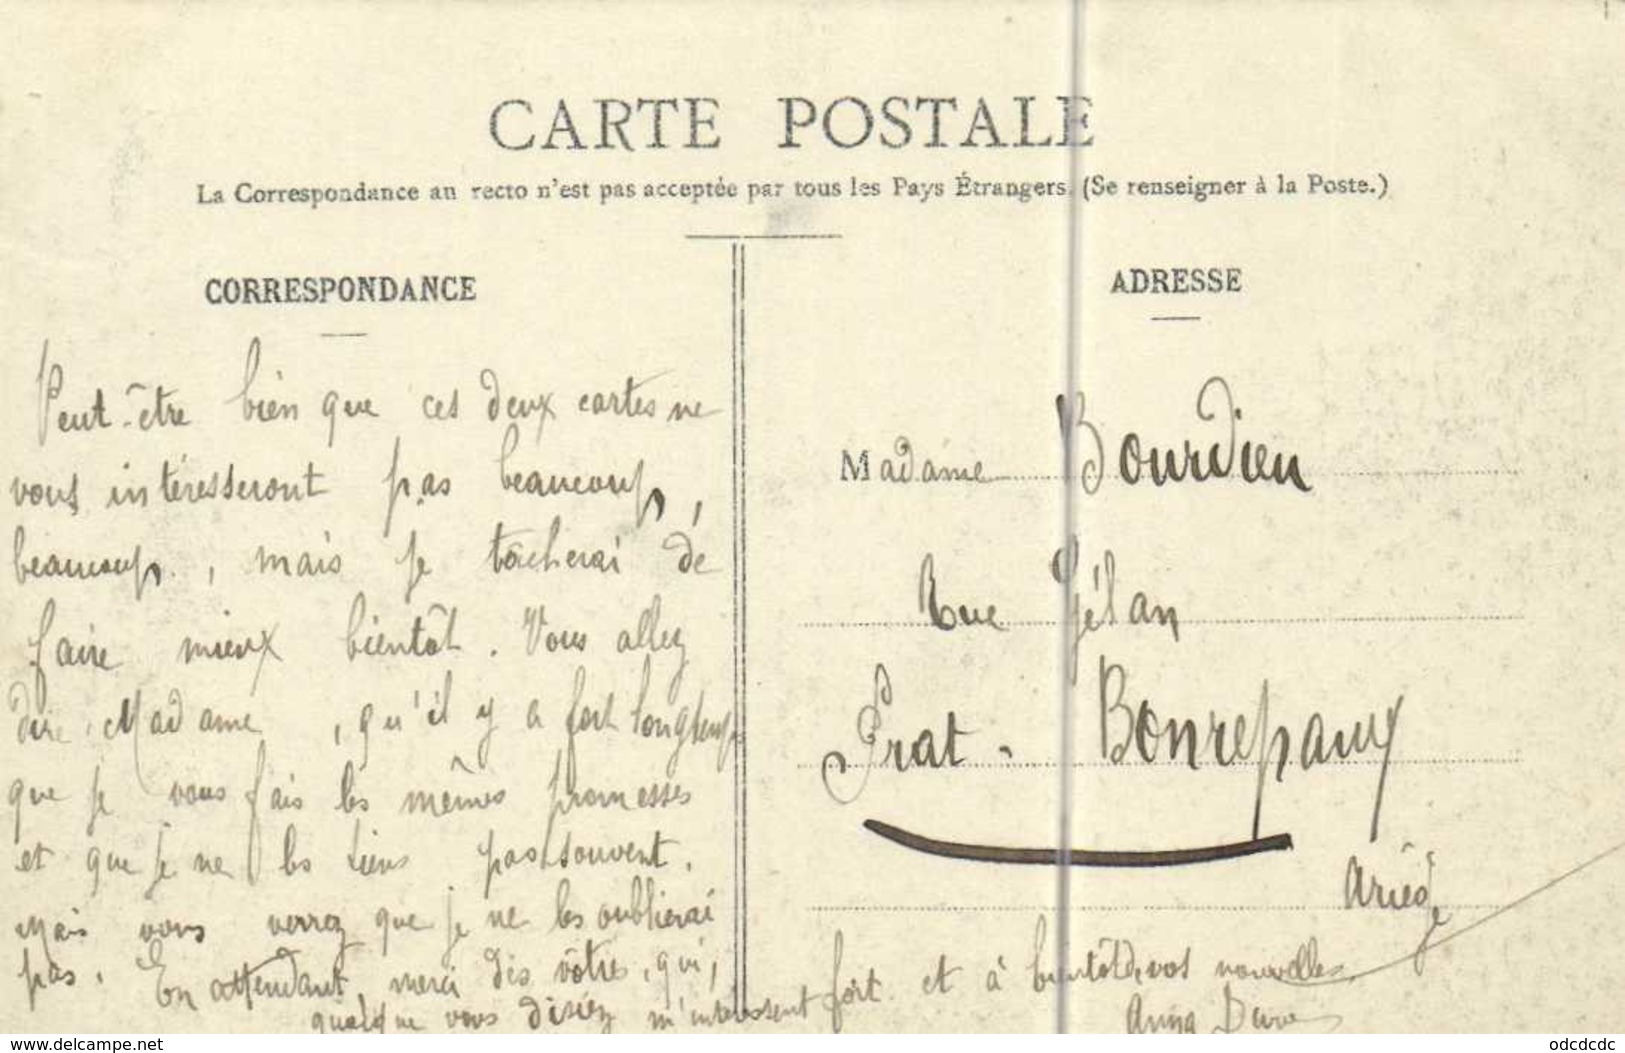 CARTE POSTALE
La Correspondance au recto n'est pas acceptée par tous les Pays Étrangers. (Se renseigner à la Poste.)
CORRESPONDANCE
Peut-être bien que ces deux cartes ne
vous intéresseront pas beaucoup,
beaucoup, mais je tâcherai de
faire mieux bientôt. Vous allez
dire, Madame, qu'il y a fort longtemps
que je vous fais les mêmes promesses
et que je ne les tiens pas souvent.
Mais vous verrez que je ne les oublierai
pas. En attendant, merci des vôtres, qui,
quoique vous disiez m'intéressent fort et à bientôt de vos nouvelles
Anna
ADRESSE
Madame Bourdieu
Rue Gélan
Prat-Bonrepaux
Ariège
www.delcampe.net
odcdcdc